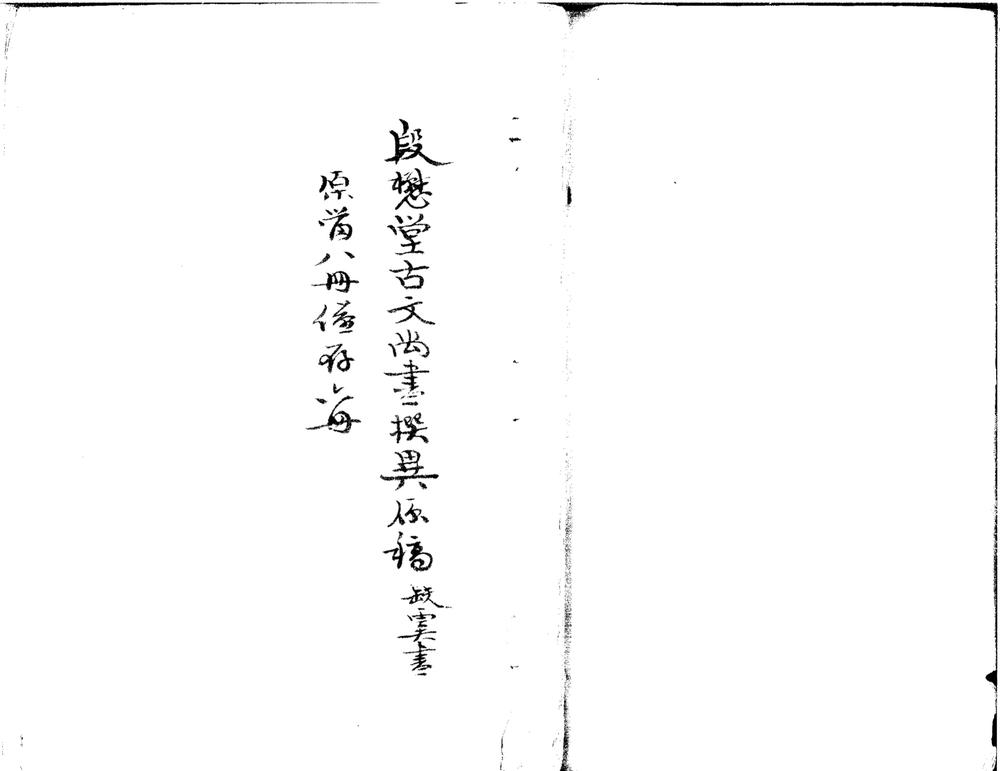 段懋堂古文尚書撰異原稿 缺虞書
原當八冊僅存六冊